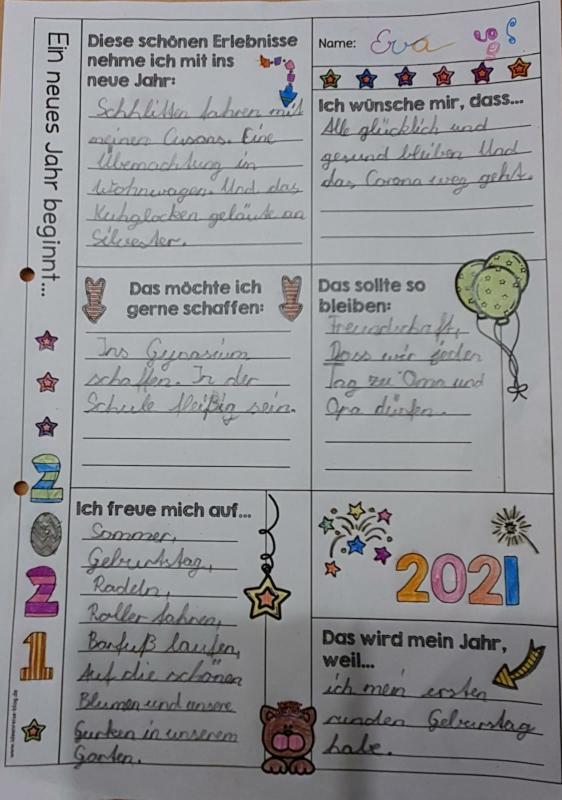 Ein neues Jahr beginnt...
2021
www.ideenreise-blog.de
Diese schönen Erlebnisse
nehme ich mit ins
neue Jahr:
Schhlitten fahren mit
meinen Cusons. Eine
Übernachtung in
Wohnwagen. Und das
Kuhglocken geläute an
Silvester.
Name: Eva
Ich wünsche mir, dass...
Alle glücklich und
gesund bleiben Und
das Corona weg geht.
Das möchte ich
gerne schaffen:
Ins Gynasium
schaffen. In der
Schule fleißig sein.
Das sollte so
bleiben:
Freundschaft,
Dass wir jeden
Tag zu Oma und
Opa dürfen.
Ich freue mich auf...
Sommer,
Geburtstag,
Radeln,
Roller fahren,
Barfuß laufen,
Auf die schönen
Blumen und unsere
Gurken in unserem
Garten.
2021
Das wird mein Jahr,
weil...
ich mein ersten
runden Geburstag
habe.